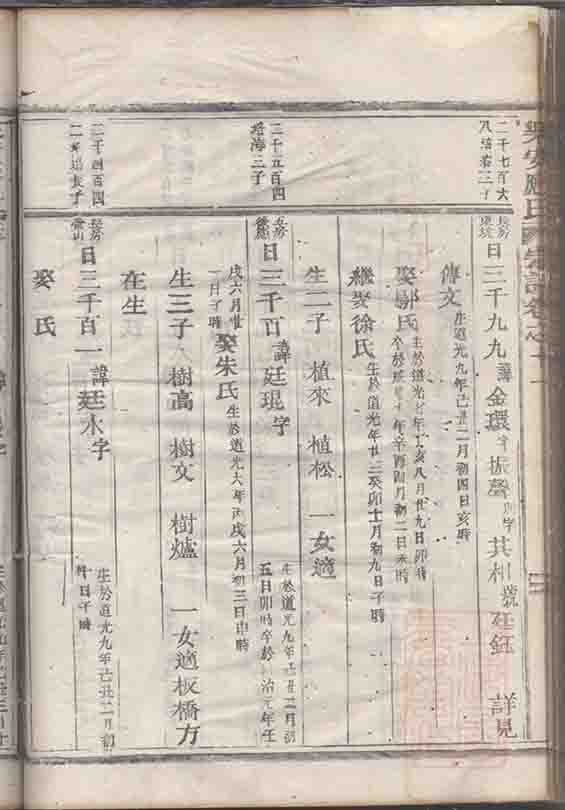 應氏宗譜卷之十一
二千七百六
八 三子
長房
日三千九九諱金環字振聲 行字 其 號 廷鈺 詳見
傳文 生道光九年己丑二月初四日亥時
娶郭氏 生於道光七年丁亥八月廿九日卯時
卒於咸豐十一年辛酉四月初二日未時
繼娶徐氏 生於道光年廿三癸卯十月初九日子時
生二子 植來 植松 一女適
二千五百四
培海三子
五房
日三千百諱廷琨字 生於道光九年己丑二月初
五日卯時卒於 治元年壬
戌六月廿
一日子時 娶朱氏 生於道光六年丙戌六月初三日申時
生三子 樹高 樹文 樹爐 一女適板橋方
二千四百四
長房
日三千百一諱廷水字 生於道光九年己丑二月初
十日子時
在生
娶氏